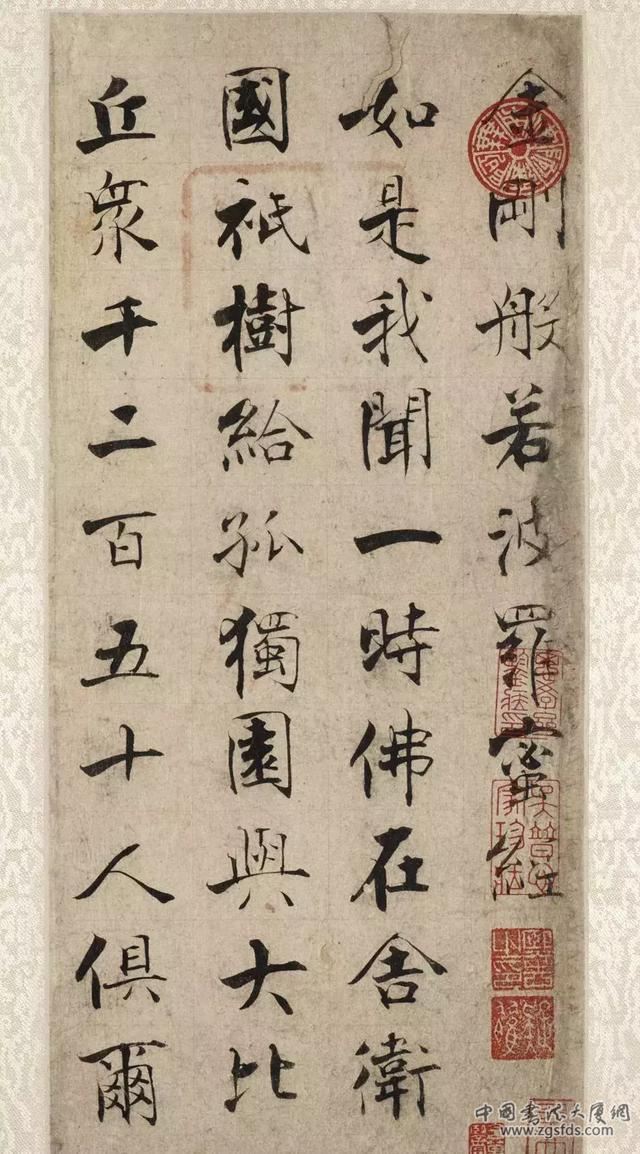 金剛般若波羅蜜經
如是我聞一時佛在舍衛
國祇樹給孤獨園與大比
丘衆千二百五十人俱爾
中國書法大廈網
www.zgsfds.com